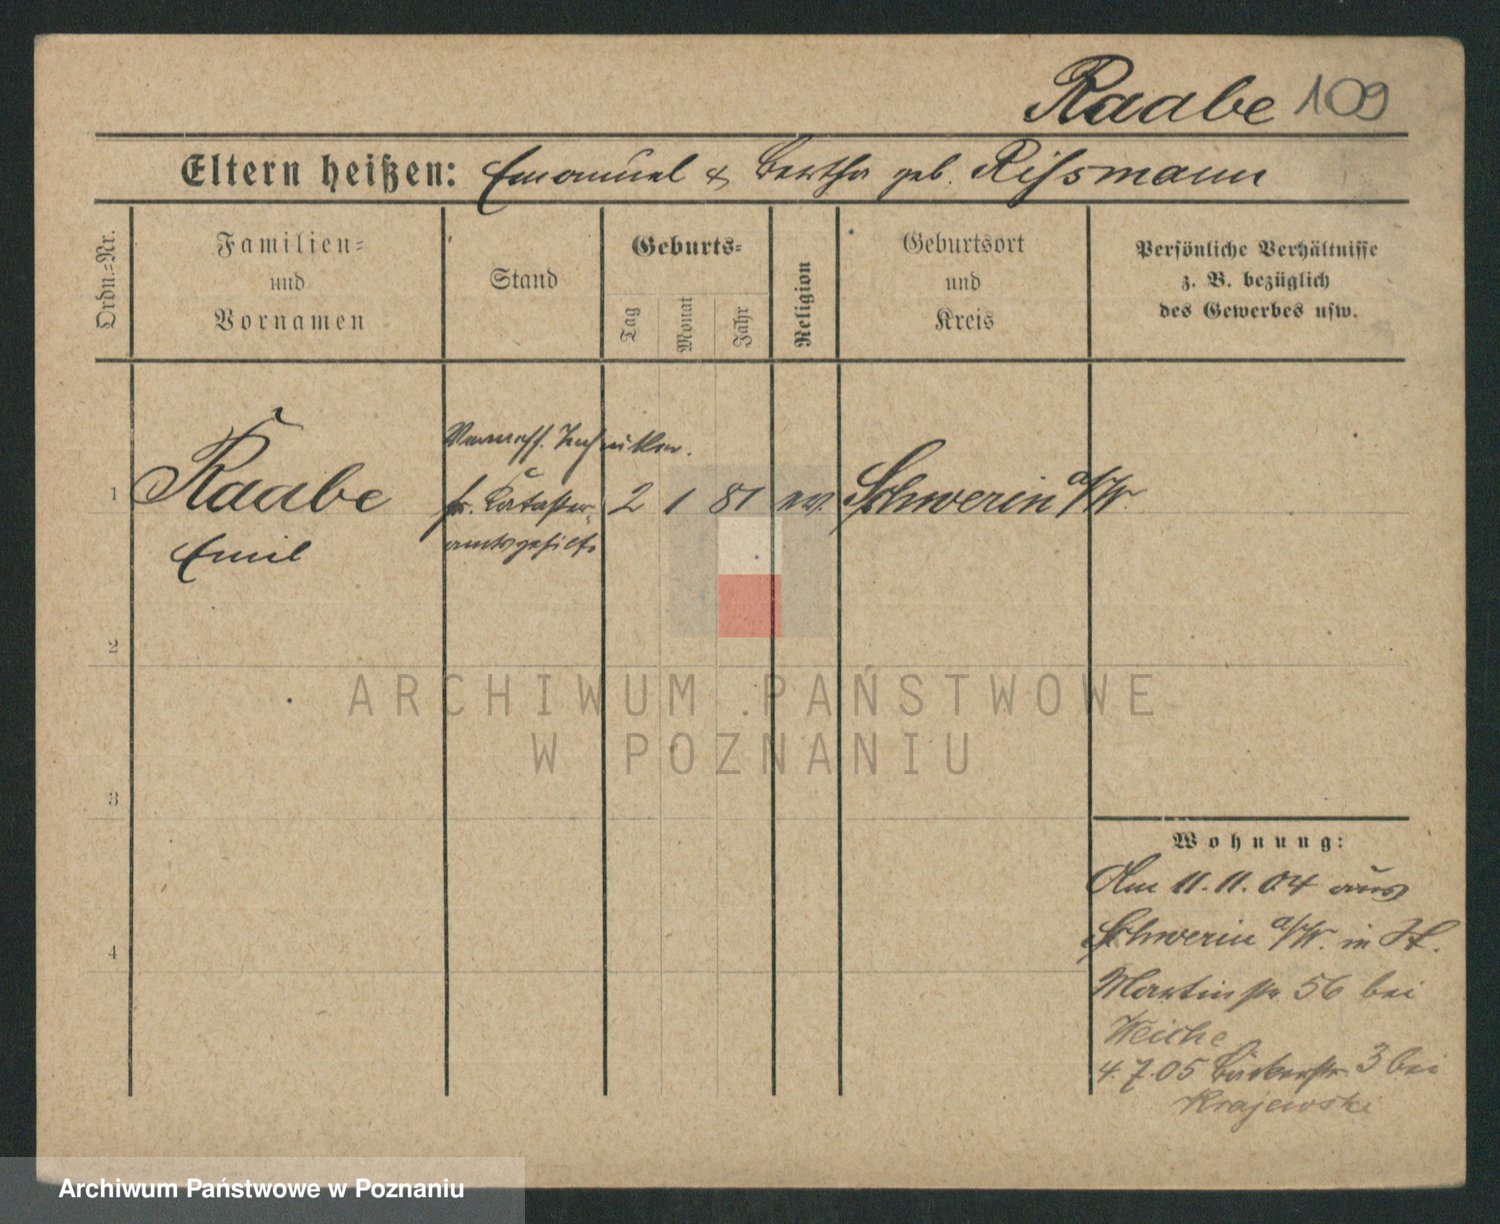 Raabe 109
Eltern heißen: Emanuel & Bertha geb. Rissmann
Ordn.-Nr.
Familien-
und
Vornamen
Stand
Geburts-
Tag
Monat
Jahr
Religion
Geburtsort
und
Kreis
Persönliche Verhältnisse
z. B. bezüglich
des Gewerbes usw.
Techniker.
1 Raabe fr. Kataster- 2 1 81 ev. Schwerin a/W.
Emil amtsgehilfe
2
3
4
Wohnung:
Am 11.11.04 aus
Schwerin a/W. in St.
Martinstr 56 bei
Weiche
4.7.05 Bäckerstr 3 bei
Krajewski
ARCHIWUM PAŃSTWOWE
W POZNANIU
Archiwum Państwowe w Poznaniu